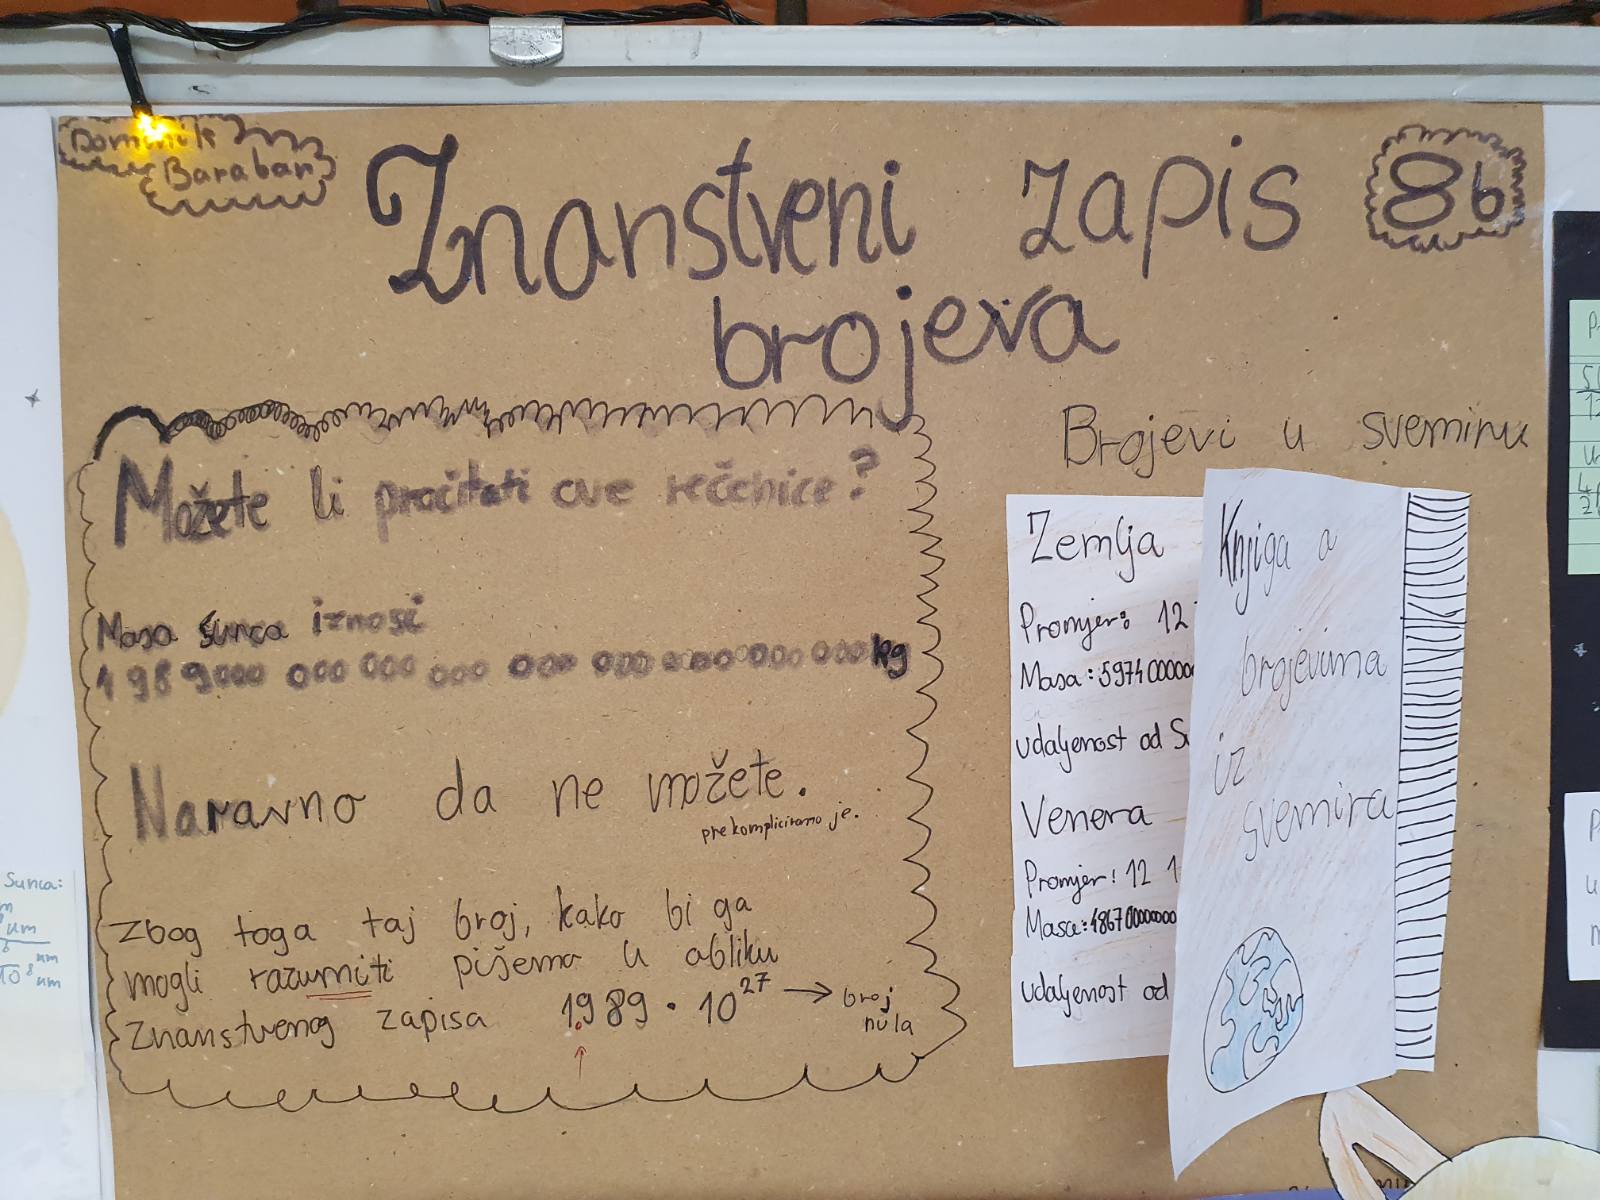 Dominik
Baraban
Znanstveni zapis
brojeva
8b
Možete li pročitati ove rečenice?
Masa sunca iznosi
1989000 000 000 000 000 000 000 000 000 kg
Naravno da ne možete.
prekomplicirano je.
Zbog toga taj broj, kako bi ga
mogli razumiti pišemo u obliku
Znanstvenog zapisa 1.989 · 10²⁷ → broj
nula
Brojevi u svemiru
Zemlja
Promjer: 12
Masa: 5974000000
udaljenost od Su
Venera
Promjer: 12 1
Masa: 4867000000000
udaljenost od
Knjiga o
brojevima
iz
svemira
Sunca: